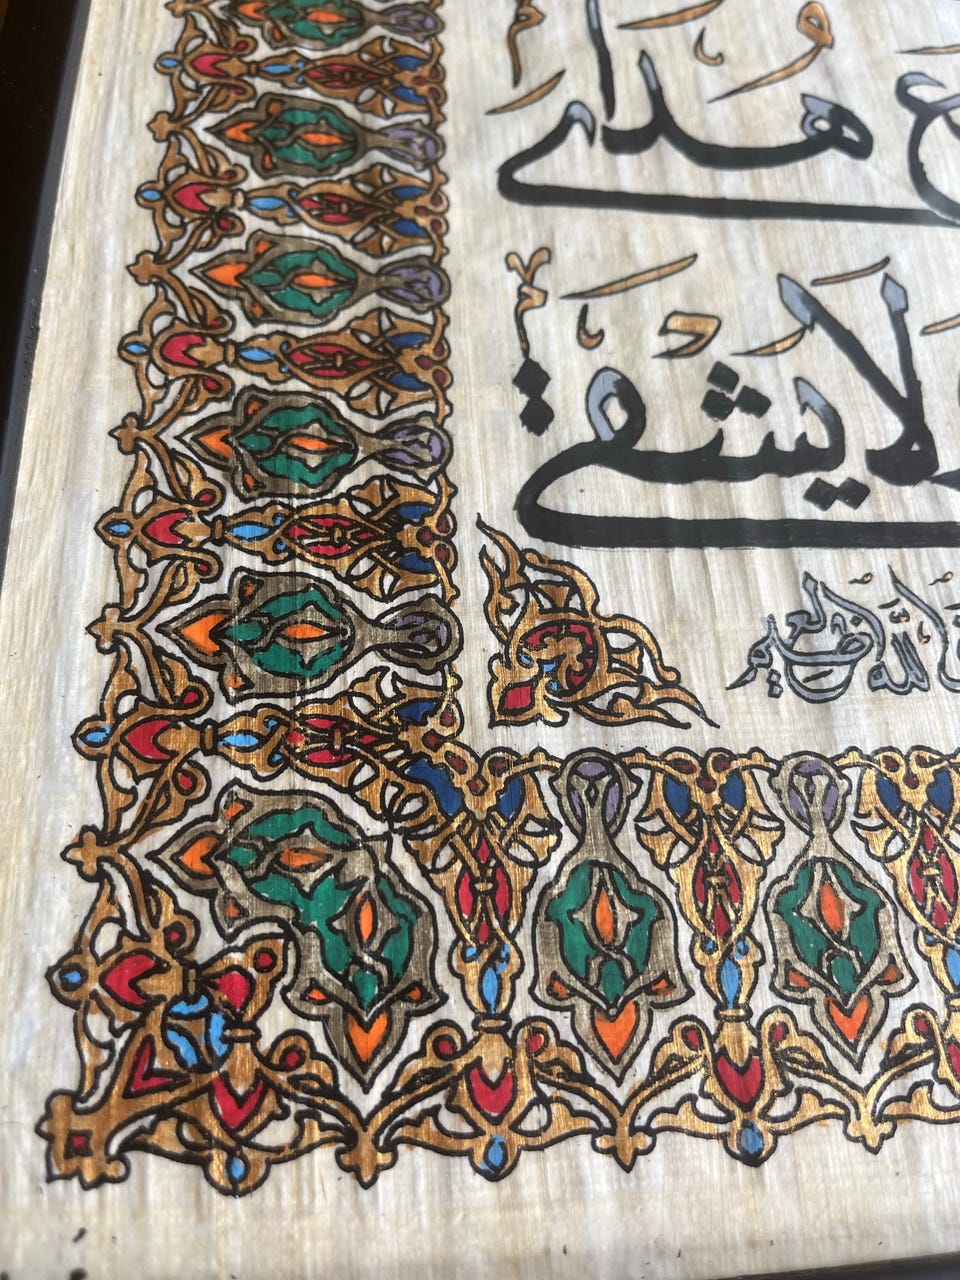 ع هُدَاىَ
لَا يَشْقَىٰ
الله العظيم